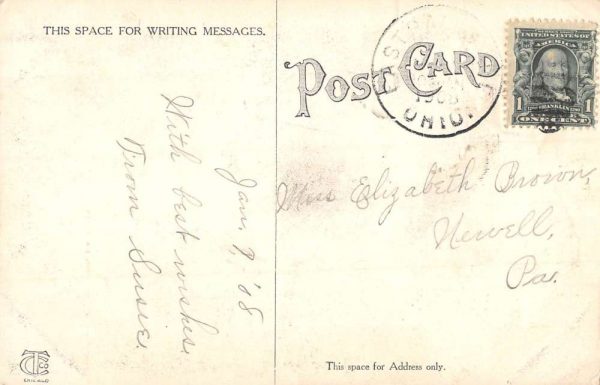 THIS SPACE FOR WRITING MESSAGES.
Jan. 9, '08
With best wishes.
From Susie.
POST CARD
1908
OHIO.
UNITED STATES OF
AMERICA
1
1
FRANKLIN
ONE CENT
Miss Elizabeth Brown,
Newell,
Pa.
This space for Address only.
CHICAGO